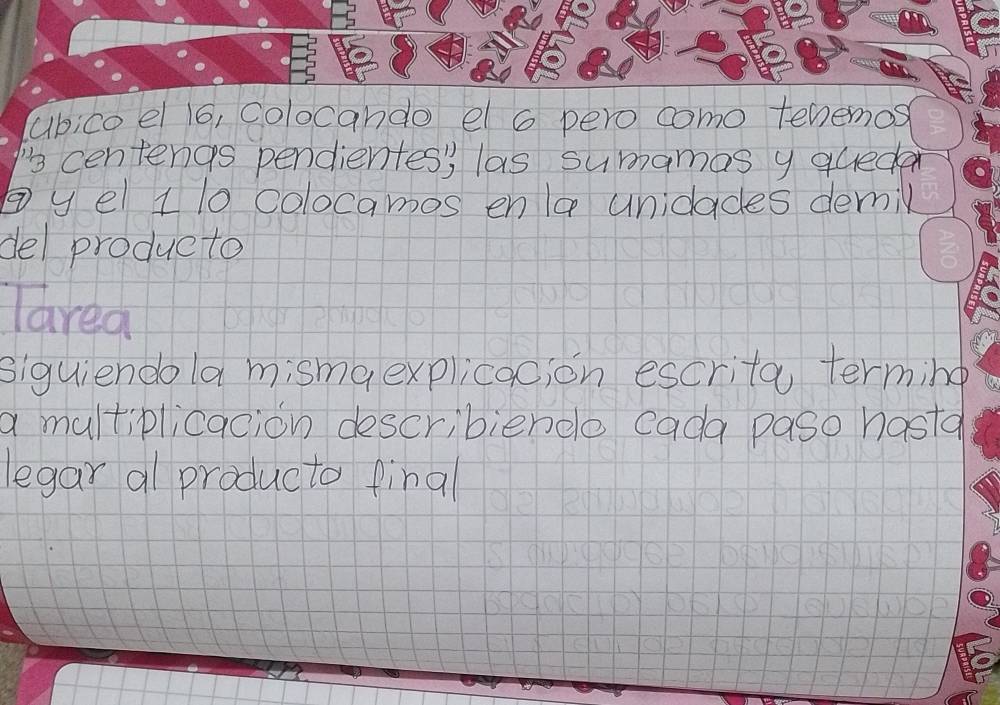 ubico el 16, colocando el 6 pero como tenemos
"3 centenas pendientes", las sumamos y quedan
9 y el 1 lo colocamos en la unidades demil
del producto
Tarea
siguiendo la misma explicación escrita, termina
a multiplicación describiendo cada paso hasta
legar al producto final
DIA
MES
AÑO
LOL
SURPRISE!